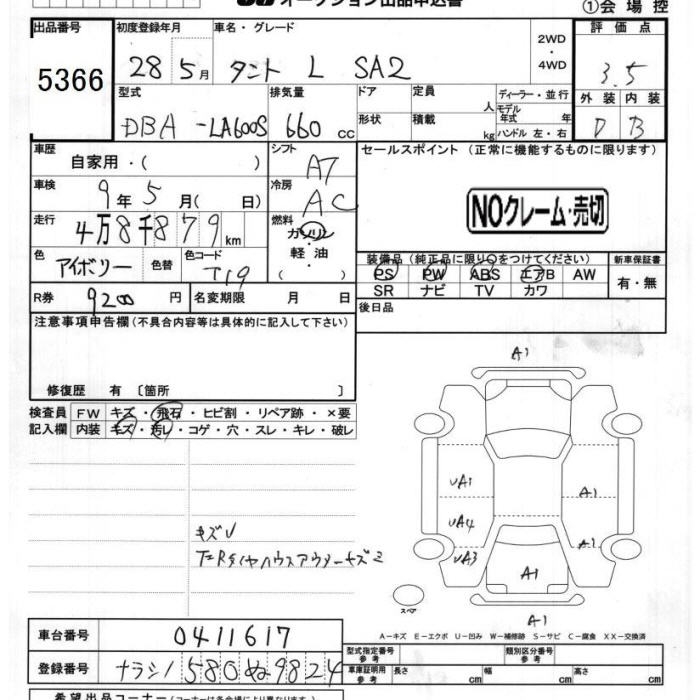 オークション出品申込書
①会場控
出品番号
5366
初度登録年月
28 5月
車名・グレード
タント L SA2
2WD
・
4WD
評価点
3.5
外装 内装
D B
型式
DBA-LA600S
排気量
660 cc
ドア
形状
定員
人
積載
kg
ディーラー・並行
モデル年式 年
ハンドル 左・右
車歴
自家用・( )
シフト
AT
車検
9年5月( 日)
冷房
AC
走行
4万8千879km
燃料
ガソリン
軽油
( )
色
アイボリー
色替
色コード
T19
R券
9200円
名変期限 月 日
セールスポイント (正常に機能するものに限ります)
NOクレーム・売切
装備品(純正品に限り○をつけてください)
PS PW ABS エアB AW
SR ナビ TV カワ
新車保証書
有・無
後日品
注意事項申告欄(不具合内容等は具体的に記入して下さい)
修復歴 有 〔箇所 〕
検査員記入欄
FW キズ・飛石・ヒビ割・リペア跡・×要
内装 キズ・汚レ・コゲ・穴・スレ・キレ・破レ
キズU
A1
UA1
A1
UA4
UA3
A1
A1
A1
スペア
A-キズ E-エクボ U-凹み W-補修跡 S-サビ C-腐食 XX-交換済
車台番号
0411617
登録番号
ナラシノ 580 ぬ 9824
型式指定番号
参考
類別区分番号
参考
車庫証明用
参考
長さ cm 幅 cm 高さ cm
希望出品コーナー(コーナーは各会場により異なります)